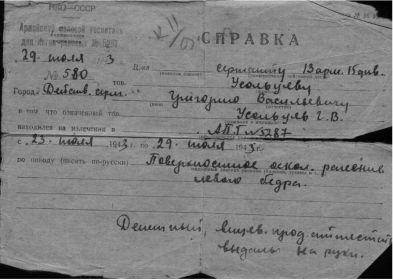 НКО—СССР
Армейский полевой госпиталь
для легкораненых № 5287
К II/01
СПРАВКА
29 июля 1943
№ 580
Дана сержанту 13 арм. 15 див.
тов. Усольцеву
Город Действ. арм.
Григорию Васильевичу
в том что означенный тов. Усольцев Г. В.
находился на излечении в АПГ № 5287
с 25 июля 1943 г. по 29 июля 1943 г.
по поводу (писать по-русски) Поверхностное оскол. ранение
левого бедра.
Денежный, вещев. прод. аттестат
выданы на руки.